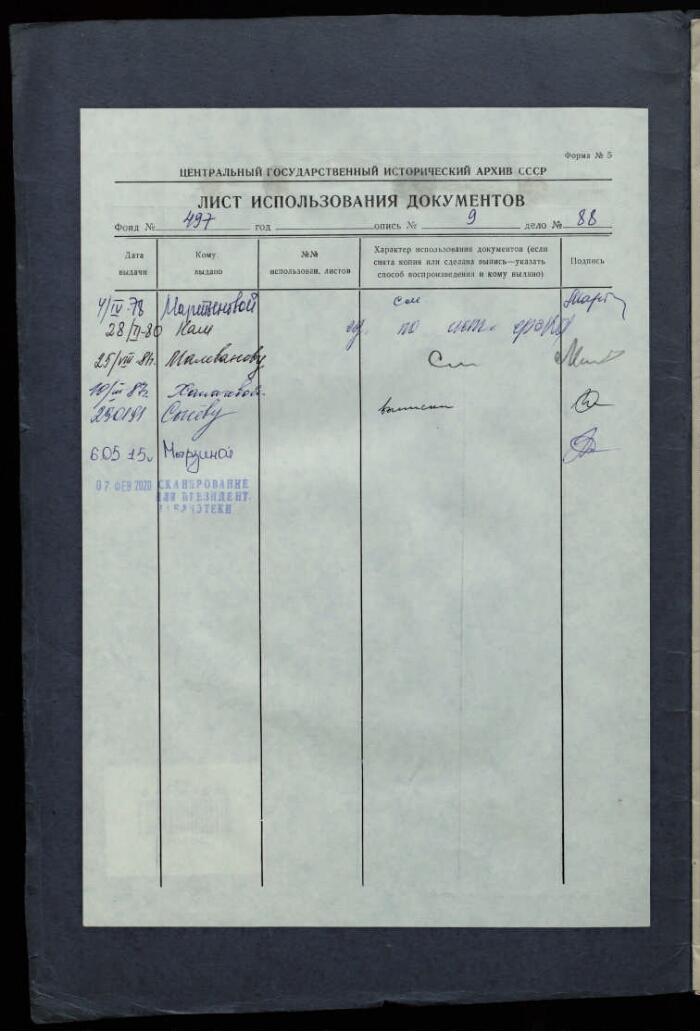 Форма № 5
ЦЕНТРАЛЬНЫЙ ГОСУДАРСТВЕННЫЙ ИСТОРИЧЕСКИЙ АРХИВ СССР
ЛИСТ ИСПОЛЬЗОВАНИЯ ДОКУМЕНТОВ
Фонд № 497 год опись № 9 дело № 88
Дата выдачи
Кому выдано
№№ использован. листов
Характер использования документов (если
снята копия или сделана выпись—указать
способ воспроизведения и кому выдано)
Подпись
4/IV-78 см
28/II-80 по
25/VIII-84г. Малеванову См
10/III 87г.
250191 Сысоеву выписки
6.05 15г Мырзиной
07 ФЕВ 2020 СКАНИРОВАНИЕ
ДЛЯ ПРЕЗИДЕНТ.
БИБЛИОТЕКИ